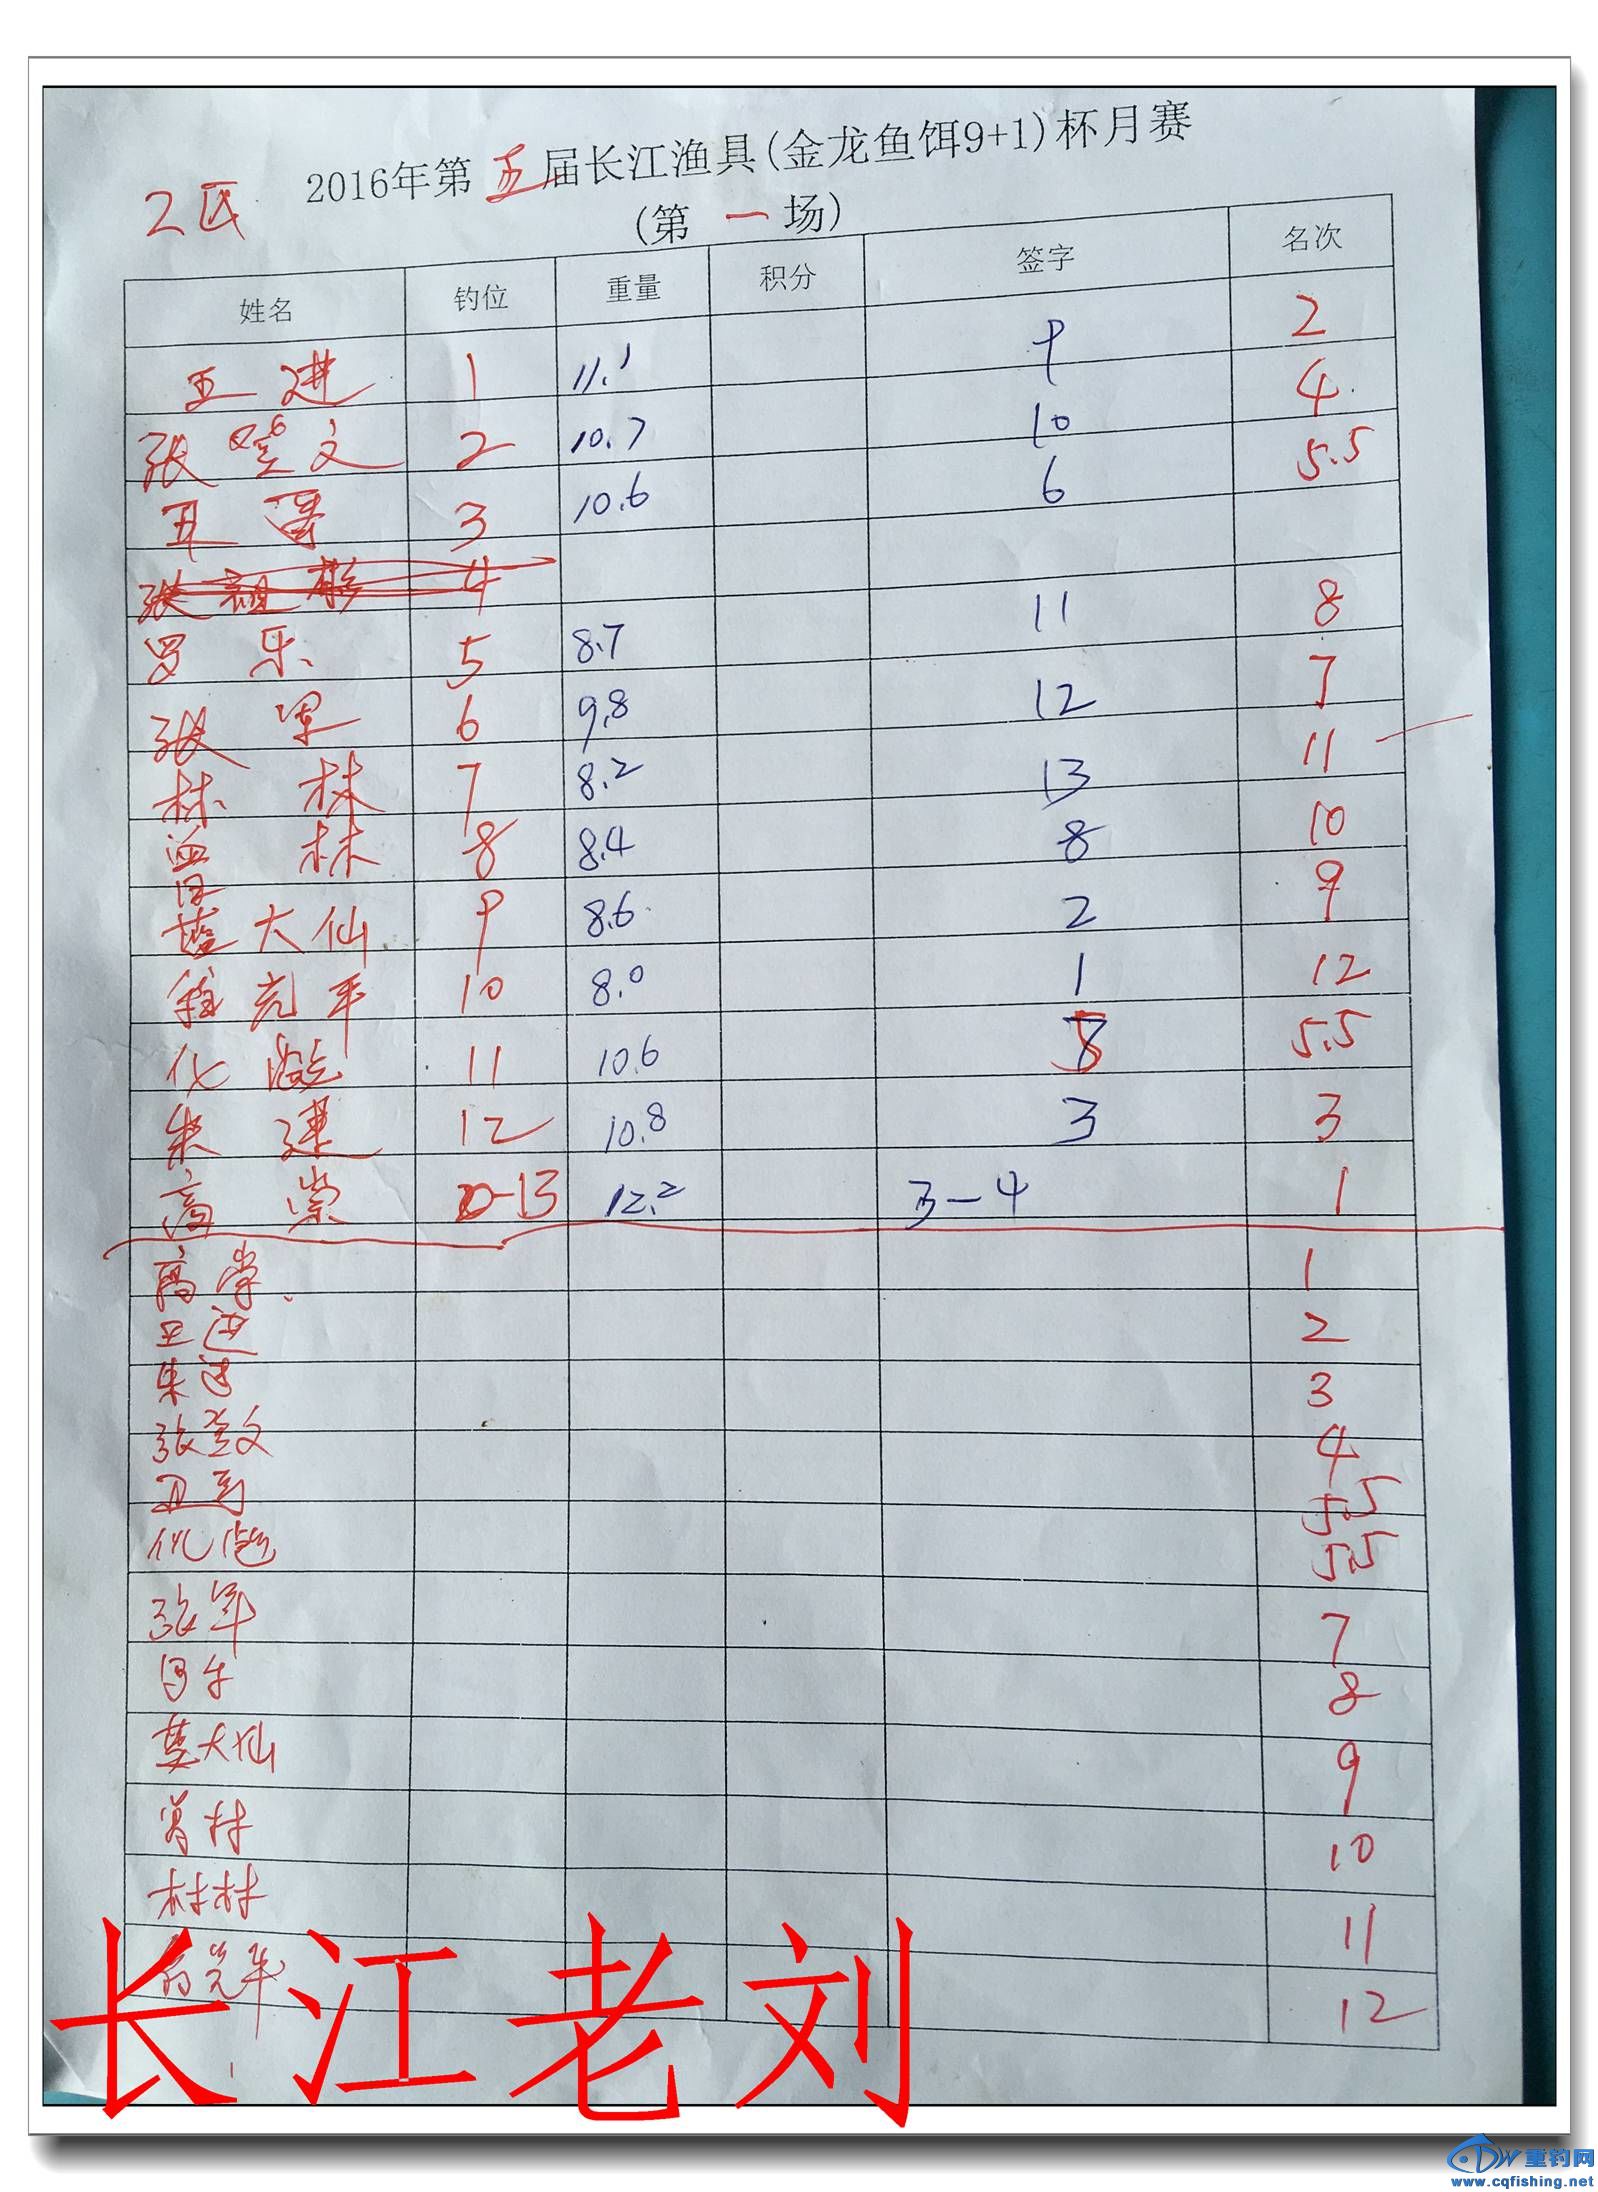 2016年第五届长江渔具(金龙鱼饵9+1)杯月赛
2区
(第 一 场)
姓名 钓位 重量 积分 签字 名次
王进 1 11.1 9 2
张登文 2 10.7 10 4
丑哥 3 10.6 6 5.5
张 4
罗乐 5 8.7 11 8
张军 6 9.8 12 7
林林 7 8.2 13 11
曾林 8 8.4 8 10
楚大仙 9 8.6 2 9
程克平 10 8.0 1 12
化 11 10.6 5.5
朱建 12 10.8 3 3
高崇 13 12.2 3-4 1
高崇 1
王进 2
朱建 3
张登文 4
丑哥 5.5
化 5.5
张军 7
罗乐 8
楚大仙 9
曾林 10
林林 11
12
长江老刘
重钓网
www.cqfishing.net